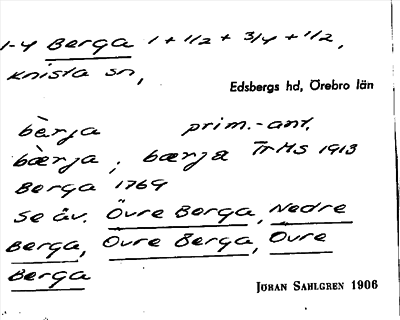 1-4 Berga 1 + 1/2 + 3/4 + 1/2,
Knista sn,
Edsbergs hd, Örebro län
bèrja prim.-ant.
bæ̀rja, bærja TrHS 1913
Berga 1769
Se äv. Övre Berga, Nedre
Berga, Övre Berga, Övre
Berga
JÖRAN SAHLGREN 1906